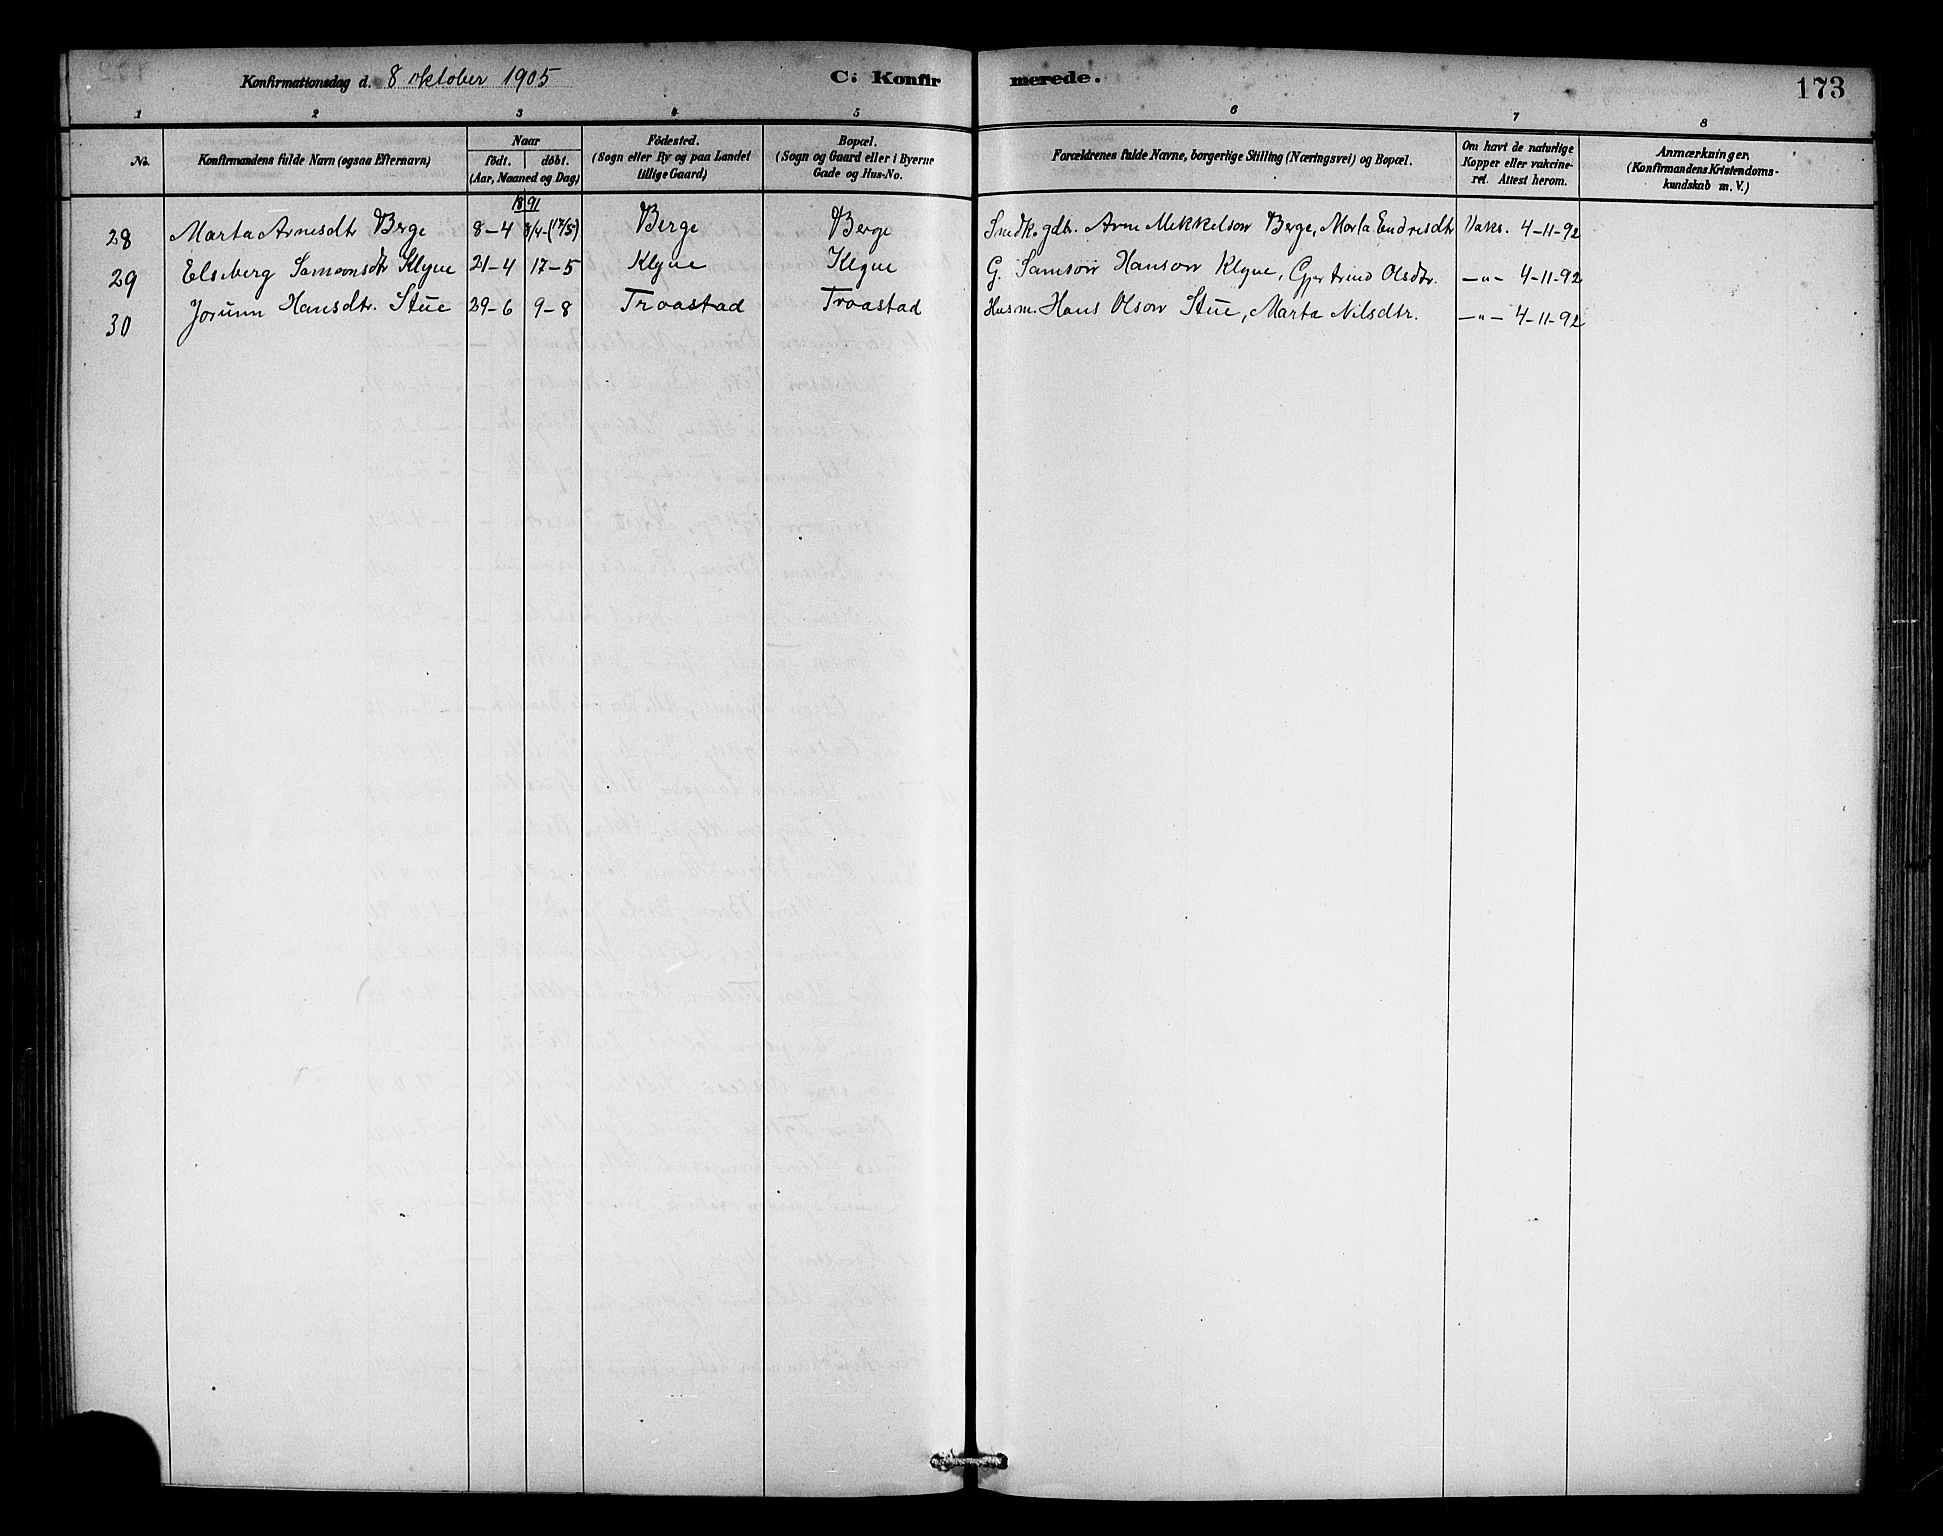 Konfirmationsdag d. 8 oktober 1905 C: Konfirmerede. 173
1 2 3 4 5 6 7 8
No. Konfirmandens fulde Navn (ogsaa Efternavn) Naar födt. döbt. (Aar, Maaned og Dag) Födested. (Sogn eller By og paa Landet tillige Gaard) Bopæl. (Sogn og Gaard eller i Byerne Gade og Hus-No. Forældrenes fulde Navne, borgerlige Stilling (Næringsvei) og Bopæl. Om havt de naturlige Kopper eller vakcineret. Attest herom. Anmærkninger. (Konfirmandens Kristendomskundskab m. V.)
1891
28 Marta Arnesdtr Berge 8-4 8/4-(17/5) Berge Berge Smedk. gdbr. Arne Mikkelson Berge, Marta Endresdtr Vaks. 4-11-92
29 Elseberg Samsonsdtr Klyve 21-4 17-5 Klyve Klyve G. Samson Hanson Klyve, Gjertrud Olsdtr. —"— 4-11-92
30 Jorunn Hansdtr. Stue 29-6 9-8 Troastad Troastad Husm. Hans Olson Stue, Marta Nilsdtr. —"— 4-11-92